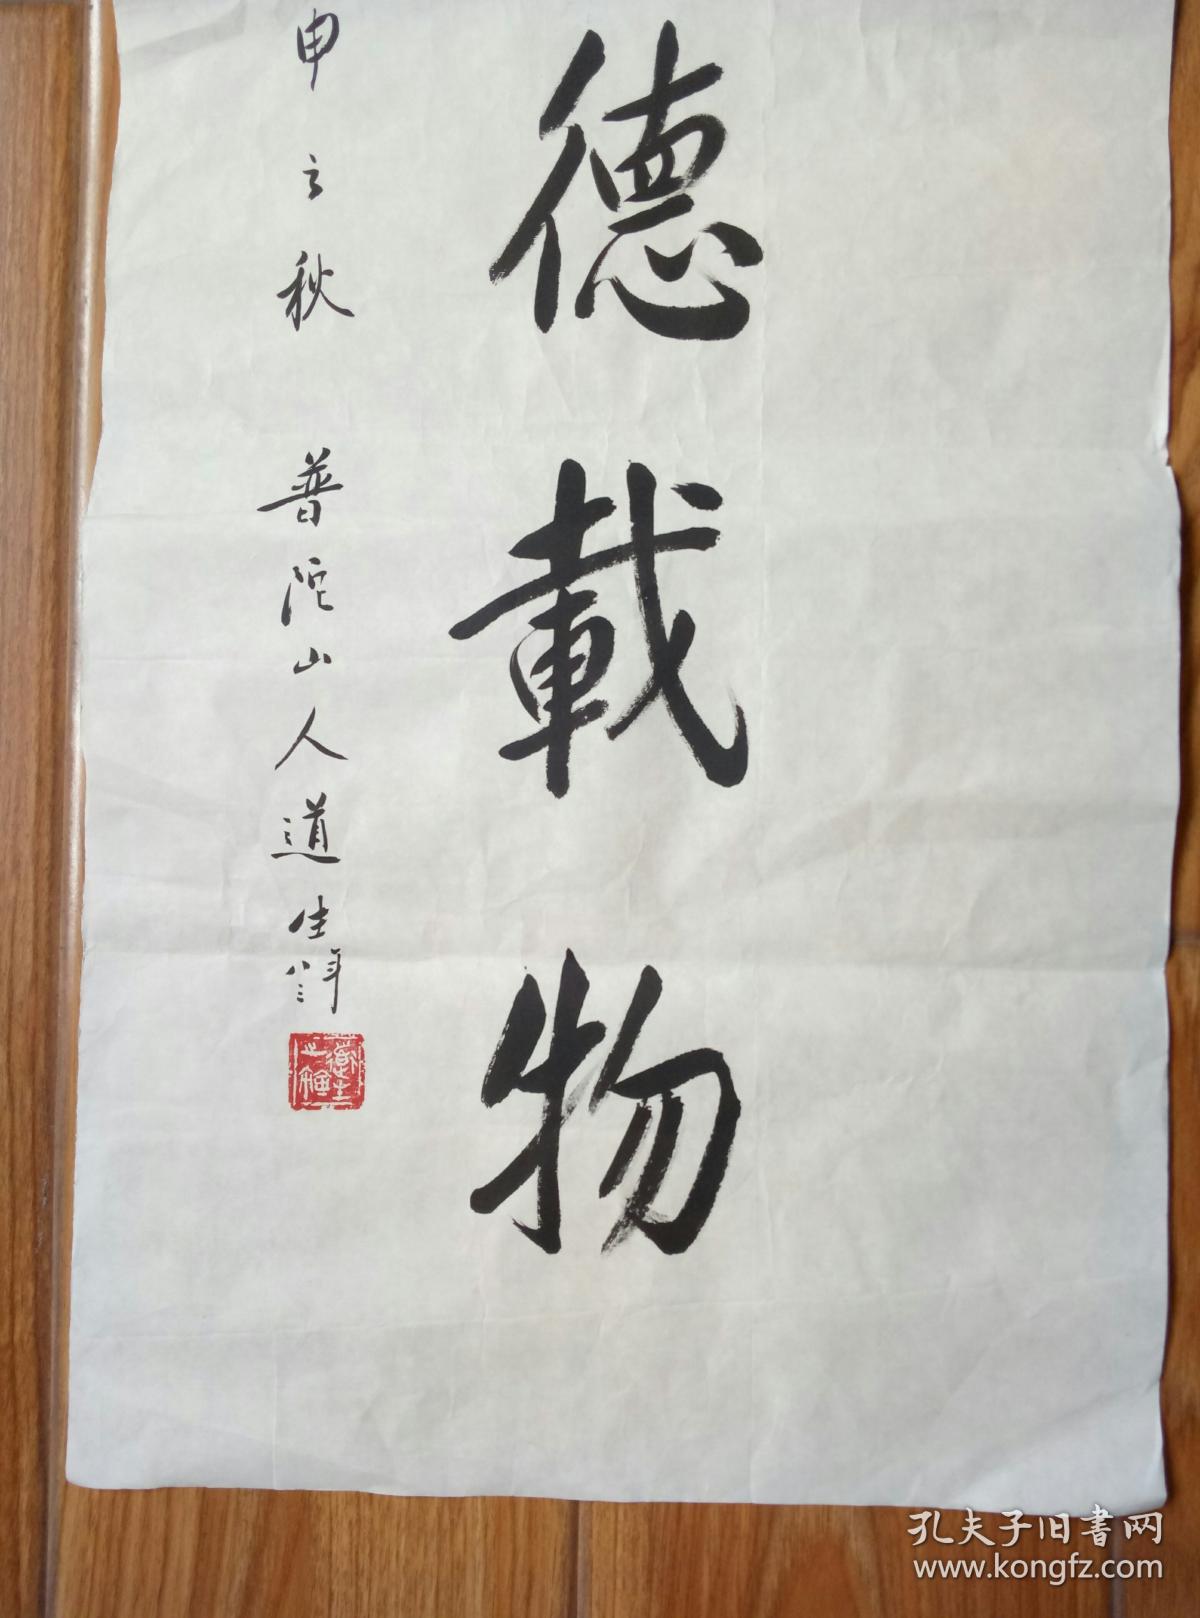 德載物
申之秋 普陀山人道生
年八三
孔夫子旧书网
www.kongfz.com